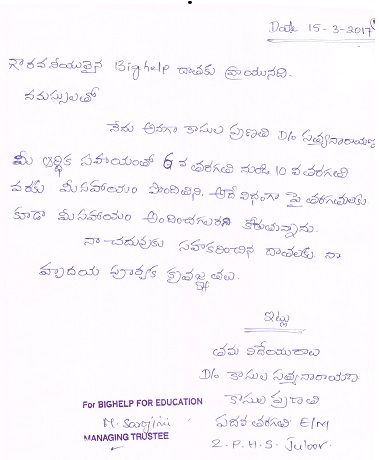 Date 15-3-2017
గౌరవనీయులైన Bighelp దాతకు వ్రాయునది.
నమస్సులతో
నేను అనగా కాసుల ప్రణతి D/o సత్యనారాయణ
మీ ఆర్థిక సహాయంతో 6 వ తరగతి నుండి 10 వ తరగతి
వరకు మీ సహాయం పొందితిని. అదే విధంగా పై తరగతులకు
కూడా మీ సహాయం అందించగలరని కోరుతున్నాను.
నా చదువుకు సహకరించిన దాతలకు నా
హృదయ పూర్వక కృతజ్ఞతలు.
ఇట్లు
తమ విధేయురాలు
D/o కాసుల సత్యనారాయణ
కాసుల ప్రణతి
పదవ తరగతి E/M
Z.P.H.S. Juloor.
For BIGHELP FOR EDUCATION
M. Sarojini
MANAGING TRUSTEE